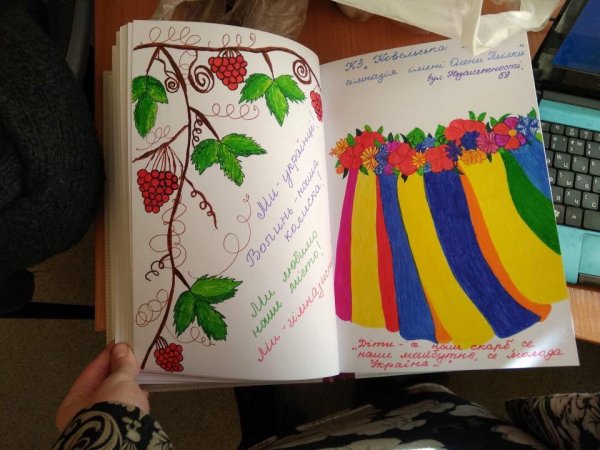 Ми - українці
Волинь - наша
колиска!
Ми любимо
наше місто!
Ми - гімназисти
КЗ „Ковельська
гімназія імені Олени Пчілки
вул Незалежності,
59
„Діти - а наш скарб, се
наше майбутнє, се молода
Україна"